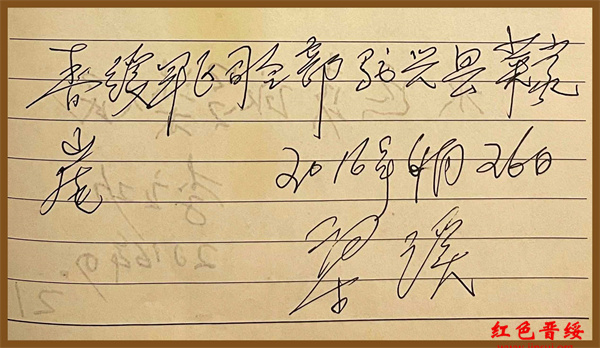 晋绥军区司令部驻兴县蔡家
崖 2016年4月26日
红色晋绥